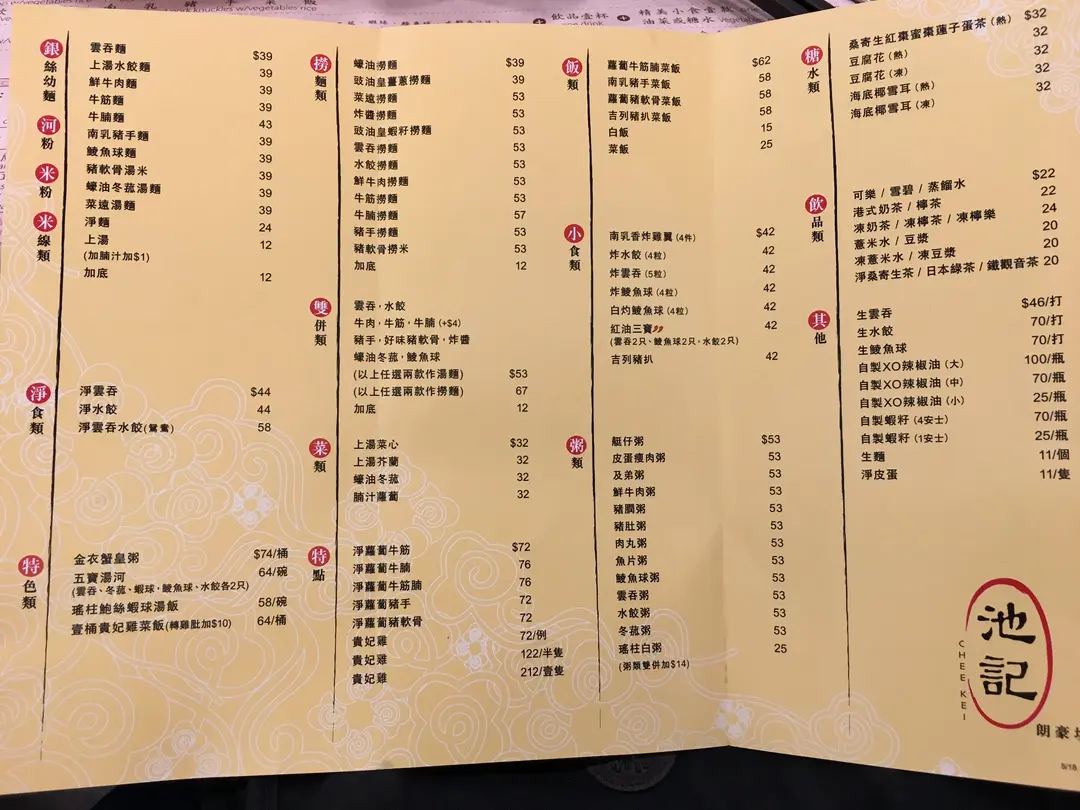 乳 豬 手 菜 飯
knuckles w/vegetables rice
+ 飲品壹杯 + 精美小食壹款
油菜或糖水
銀絲幼麵
河粉
米粉
米線類
雲吞麵 $39
上湯水餃麵 39
鮮牛肉麵 39
牛筋麵 39
牛腩麵 43
南乳豬手麵 39
鯪魚球麵 39
豬軟骨湯米 39
蠔油冬菇湯麵 39
菜遠湯麵 39
淨麵 24
上湯 12
(加腩汁加$1)
加底 12
淨食類
淨雲吞 $44
淨水餃 44
淨雲吞水餃(鴛鴦) 58
特色類
金衣蟹皇粥 $74/桶
五寶湯河 64/碗
(雲吞、冬菇、蝦球，鯪魚球、水餃各2只)
瑤柱鮑絲蝦球湯飯 58/碗
壹桶貴妃雞菜飯(轉雞肶加$10) 64/桶
撈麵類
蠔油撈麵 $39
豉油皇薑蔥撈麵 39
菜遠撈麵 53
炸醬撈麵 53
豉油皇蝦籽撈麵 53
雲吞撈麵 53
水餃撈麵 53
鮮牛肉撈麵 53
牛筋撈麵 53
牛腩撈麵 57
豬手撈麵 53
豬軟骨撈米 53
加底 12
雙併類
雲吞，水餃
牛肉，牛筋，牛腩 (+$4)
豬手，好味豬軟骨，炸醬
蠔油冬菇，鯪魚球
(以上任選兩款作湯麵) $53
(以上任選兩款作撈麵) 67
加底 12
菜類
上湯菜心 $32
上湯芥蘭 32
蠔油冬菇 32
腩汁蘿蔔 32
特點
淨蘿蔔牛筋 $72
淨蘿蔔牛腩 76
淨蘿蔔牛筋腩 76
淨蘿蔔豬手 72
淨蘿蔔豬軟骨 72
貴妃雞 72/例
貴妃雞 122/半隻
貴妃雞 212/壹隻
飯類
蘿蔔牛筋腩菜飯 $62
南乳豬手菜飯 58
蘿蔔豬軟骨菜飯 58
吉列豬扒菜飯 58
白飯 15
菜飯 25
小食類
南乳香炸雞翼 (4件) $42
炸水餃 (4粒) 42
炸雲吞 (5粒) 42
炸鯪魚球 (4粒) 42
白灼鯪魚球 (4粒) 42
紅油三寶 42
(雲吞2只、鯪魚球2只，水餃2只)
吉列豬扒 42
粥類
艇仔粥 $53
皮蛋瘦肉粥 53
及弟粥 53
鮮牛肉粥 53
豬膶粥 53
豬肚粥 53
肉丸粥 53
魚片粥 53
鯪魚球粥 53
雲吞粥 53
水餃粥 53
冬菇粥 53
瑤柱白粥 25
(粥類雙併加$14)
糖水類
桑寄生紅棗蜜棗蓮子蛋茶 (熱) $32
豆腐花 (熱) 32
豆腐花 (凍) 32
海底椰雪耳 (熱) 32
海底椰雪耳 (凍) 32
飲品類
可樂 / 雪碧 / 蒸餾水 $22
港式奶茶 / 檸茶 22
凍奶茶 / 凍檸茶 / 凍檸樂 24
薏米水 / 豆漿 20
凍薏米水 / 凍豆漿 20
淨桑寄生茶 / 日本綠茶 / 鐵觀音茶 20
其他
生雲吞 $46/打
生水餃 70/打
生鯪魚球 70/打
自製XO辣椒油 (大) 100/瓶
自製XO辣椒油 (中) 70/瓶
自製XO辣椒油 (小) 25/瓶
自製蝦籽 (4安士) 70/瓶
自製蝦籽 (1安士) 25/瓶
生麵 11/個
淨皮蛋 11/隻
池記
CHEE KEI
朗豪
8/18